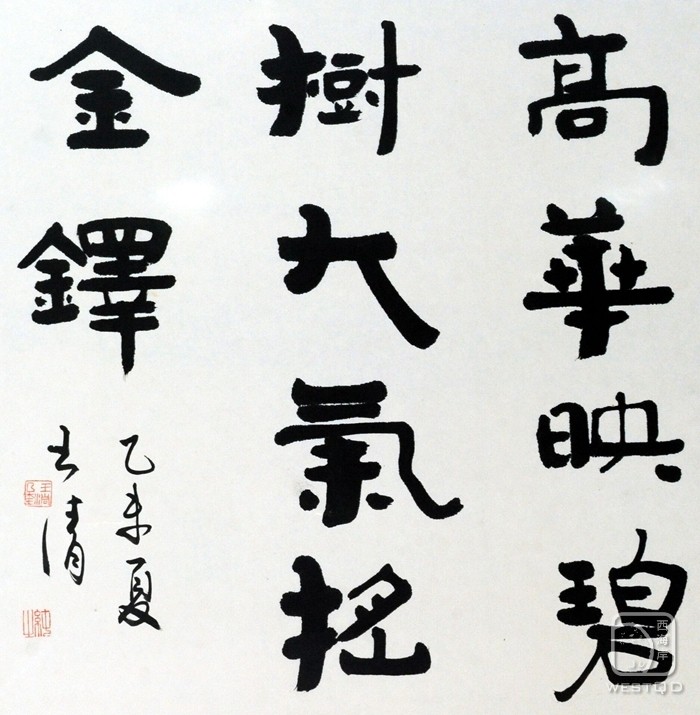 高華映碧
樹大氣搖
金鐸
乙未夏
西海岸
WESTQD